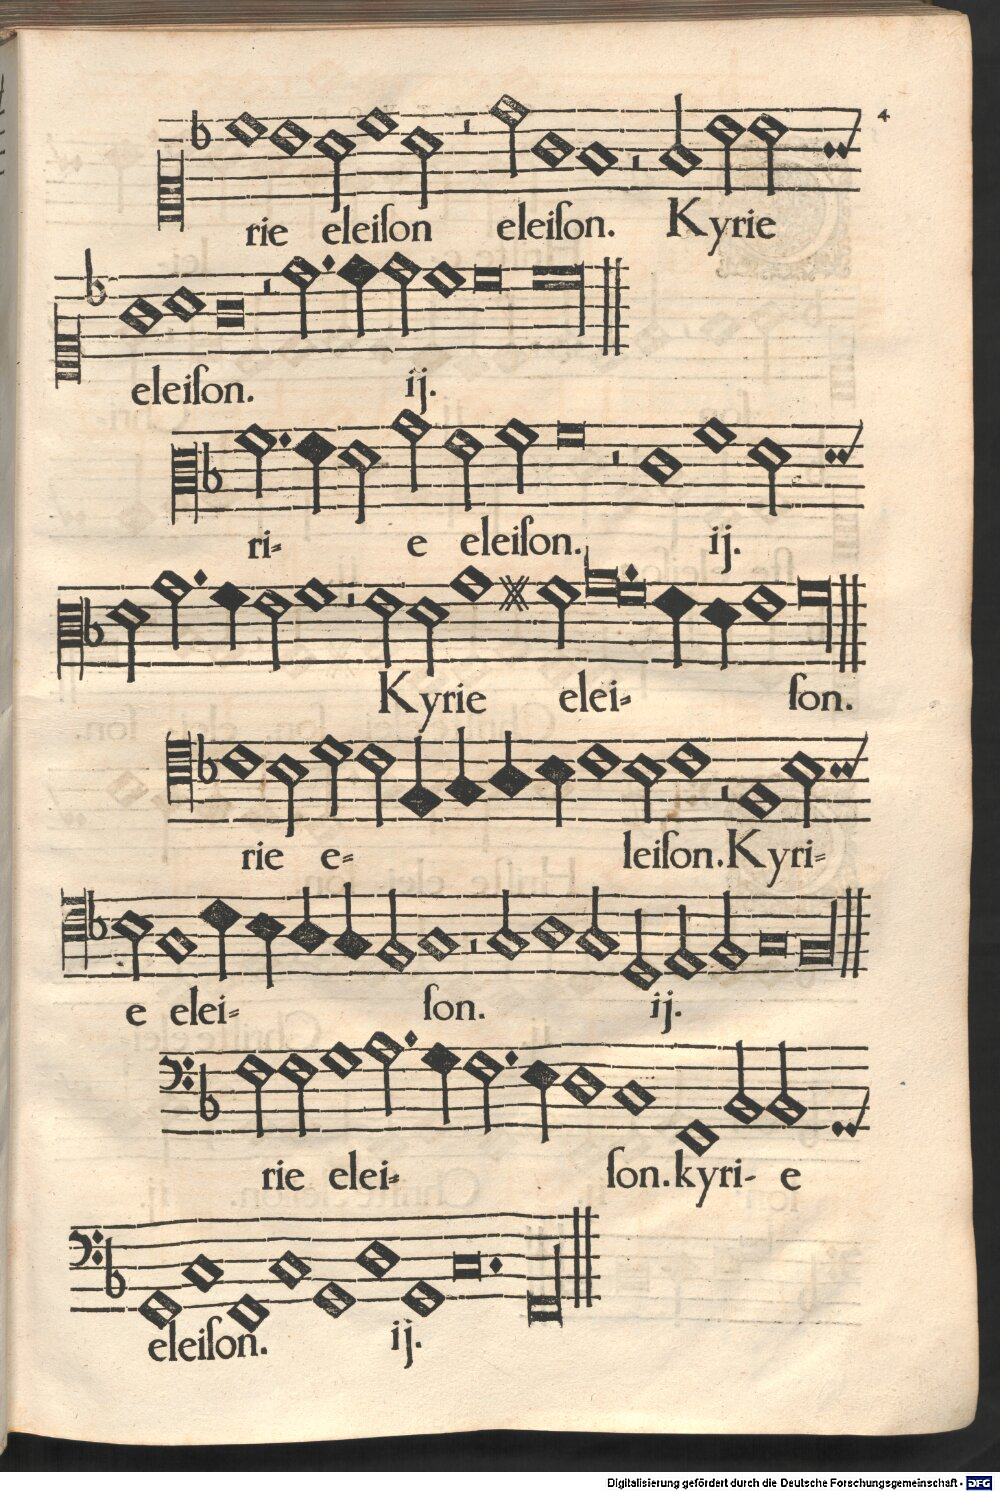 4
rie eleiſon eleiſon. Kyrie
eleiſon. ij.
ri= e eleiſon. ij.
Kyrie elei= ſon.
rie e= leiſon. Kyri=
e elei= ſon. ij.
rie elei= ſon. kyri- e
eleiſon. ij.
Digitalisierung gefördert durch die Deutsche Forschungsgemeinschaft - DFG